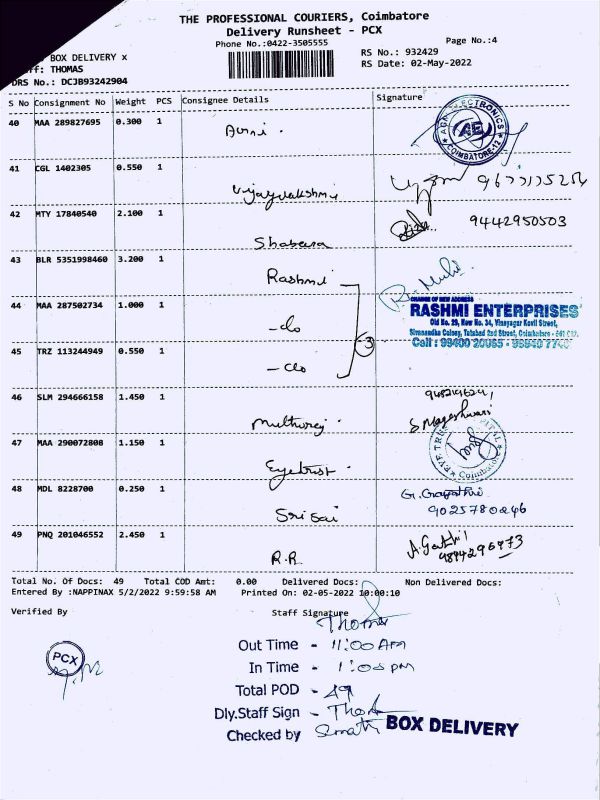 THE PROFESSIONAL COURIERS, Coimbatore
Delivery Runsheet - PCX
Phone No.:0422-3505555
Page No.:4
BOX DELIVERY x
RS No.: 932429
ff: THOMAS
RS Date: 02-May-2022
DRS No.: DCJB93242904
S No Consignment No Weight PCS Consignee Details Signature
40 MAA 289827695 0.300 1
AGN ELECTRONICS
AE
COIMBATORE-12
41 CGL 1402305 0.550 1
Vijayalakshmi
42 MTY 17840540 2.100 1 9442950503
Shabeena
43 BLR 5351998460 3.200 1
Rashmi
CHANGE OF NEW ADDRESS
44 MAA 287502734 1.000 1 RASHMI ENTERPRISES
Old No. 29, New No. 34, Vinayagar Kovil Street,
-do
Tatabad 2nd Street, Coimbatore -
3
45 TRZ 113244949 0.550 1
Cell : 99400 20065 -
-do
46 SLM 294666158 1.450 1
S. Nageshwari
Muthuraj
47 MAA 290072808 1.150 1
EYE TRUST HOSPITAL
Coimbatore
Eyetrust
48 MDL 8228700 0.250 1 G. Gayathri
9025780246
Sri Sai
49 PNQ 201046552 2.450 1
R.R
Total No. Of Docs: 49 Total COD Amt: 0.00 Delivered Docs: Non Delivered Docs:
Entered By :NAPPINAX 5/2/2022 9:59:58 AM Printed On: 02-05-2022 10:00:10
Verified By Staff Signature
Thomas
PCX
Out Time - 11:00 AM
In Time - 1:00 PM
Total POD - 49
Dly.Staff Sign -
Checked by
BOX DELIVERY